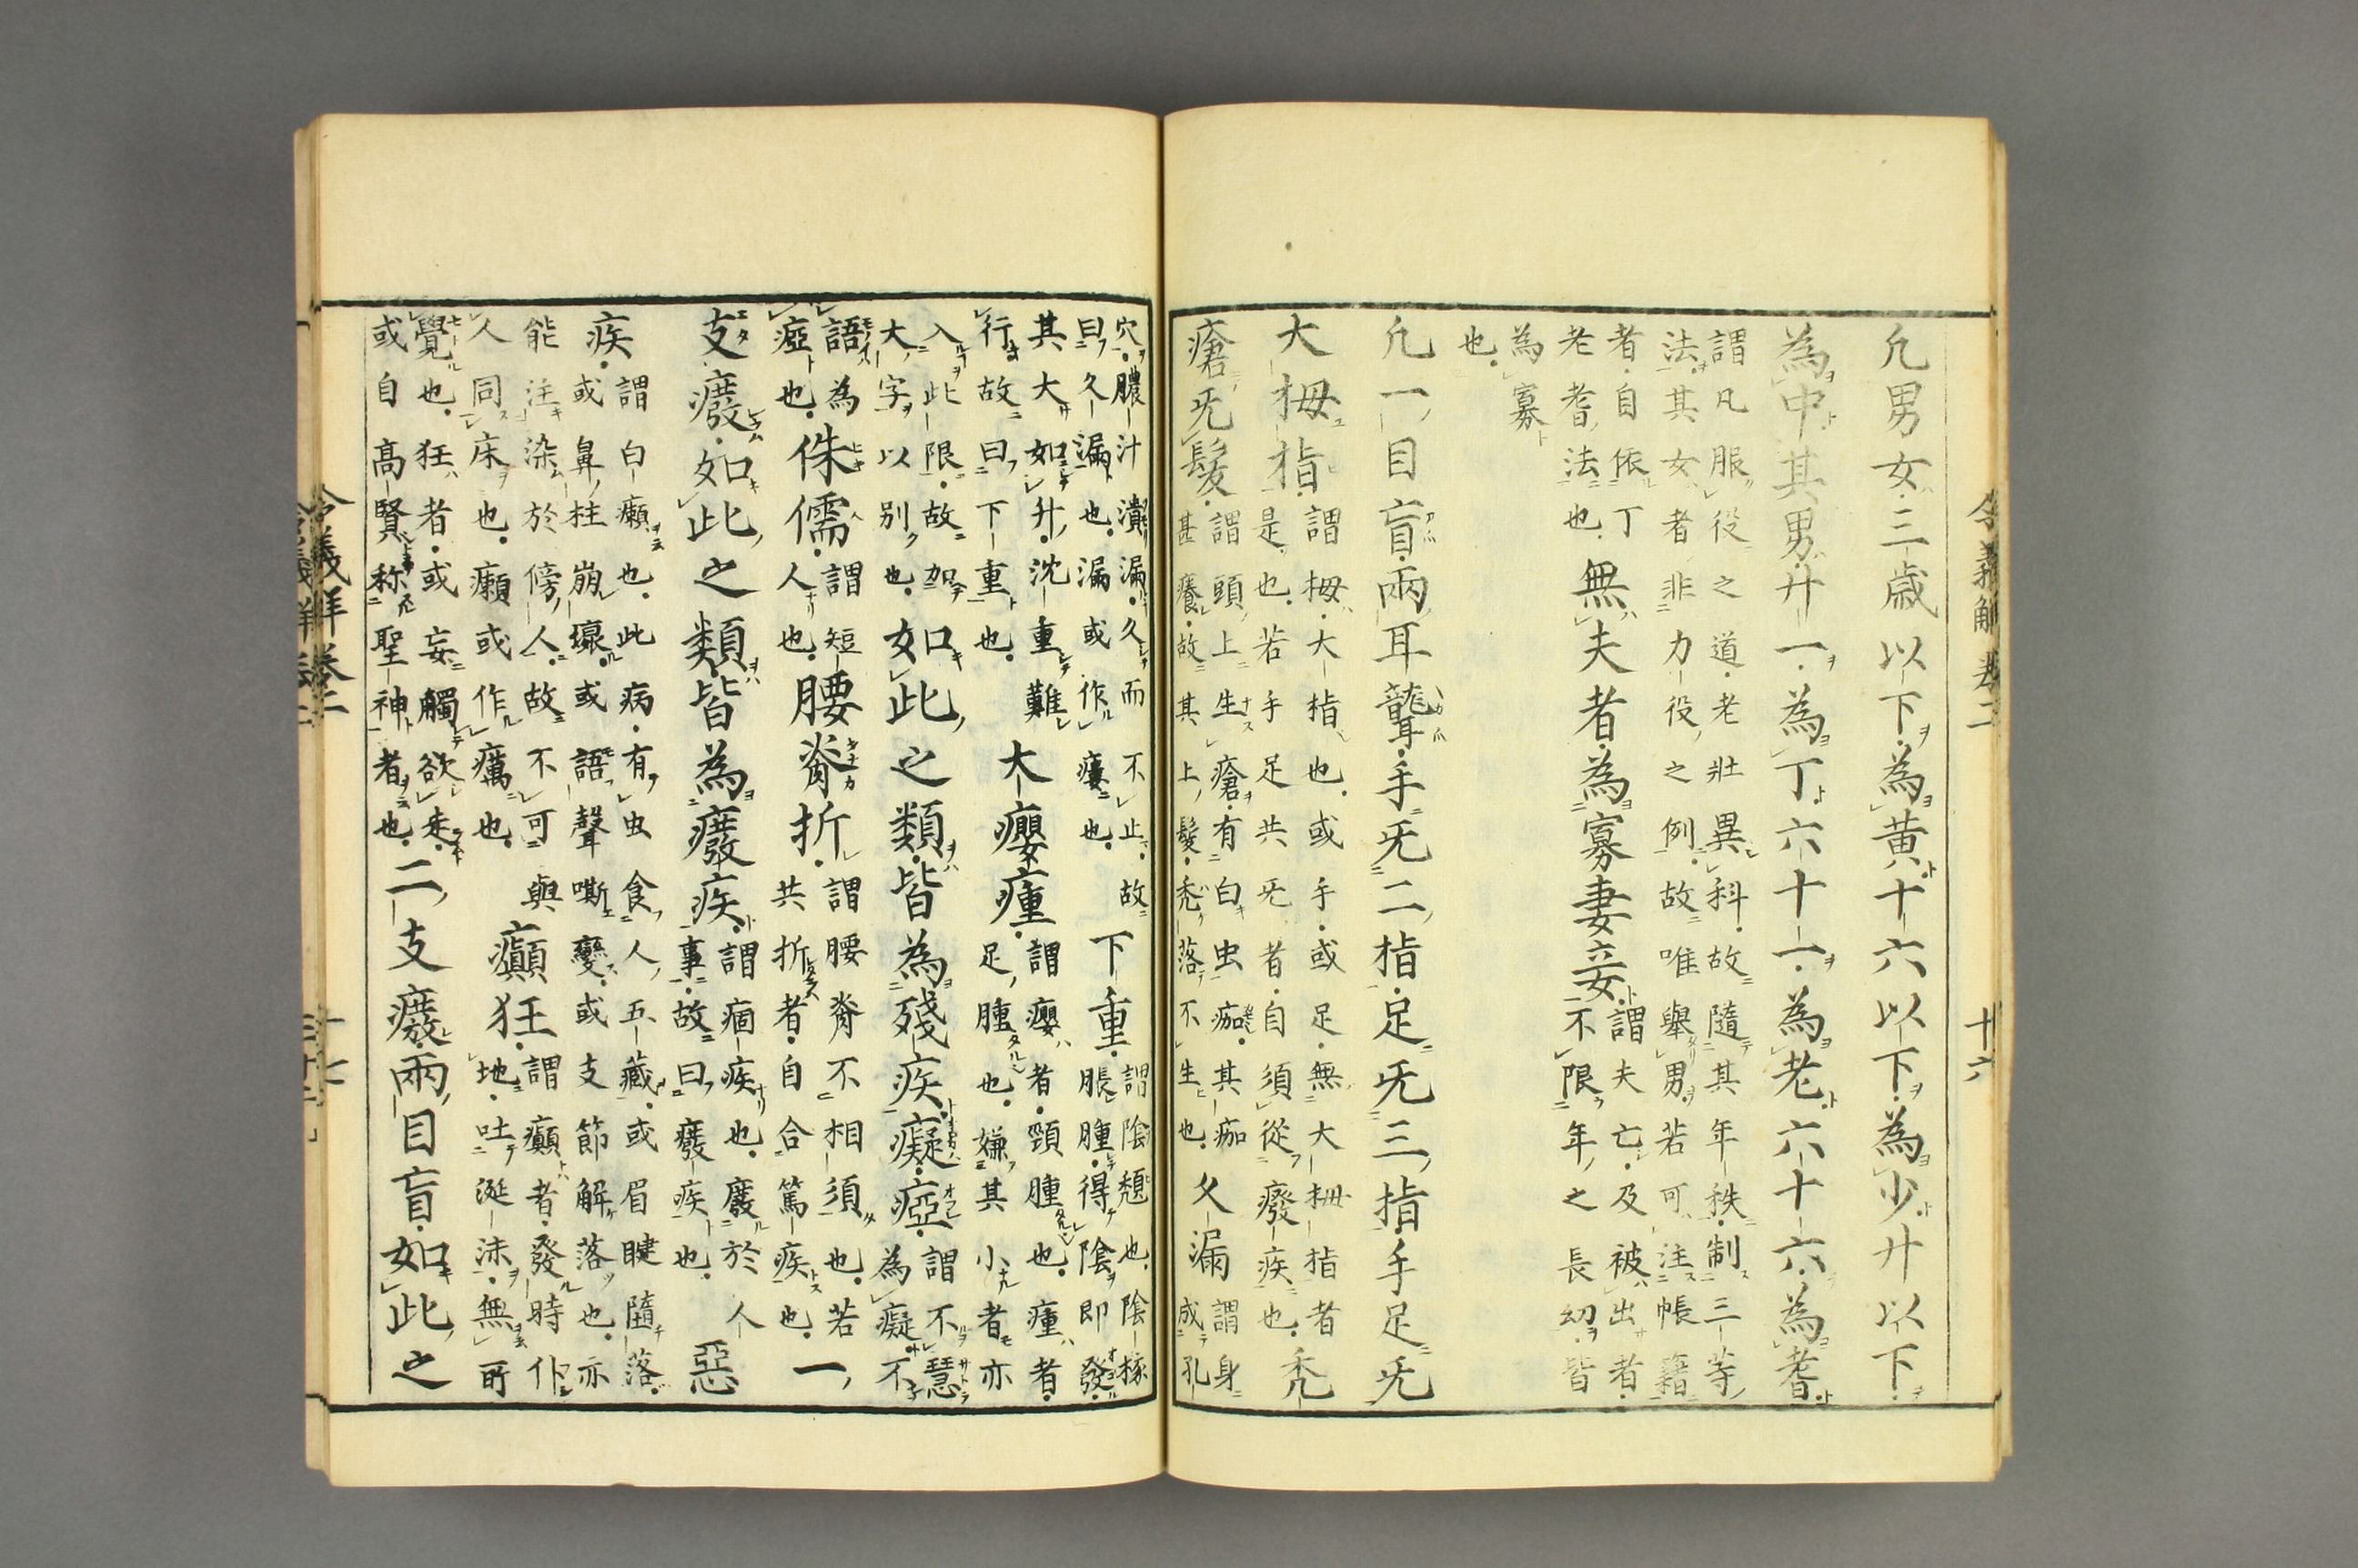 凡男女三歳以下為黄十六以下為少廿以下
為中其男廿一為丁六十一為老六十六為耆
謂凡服役之道老壯異科故隨其年秩制三等
法其女者非力役之例故唯舉男若可注帳籍
者自依丁
老耆法也
無夫者為寡妻妾
謂夫亡及被出者
不限年之長幼皆
為寡
也
凡一目盲兩耳聾手旡二指足旡三指手足旡
大拇指
謂拇大指也或手或足無大拇指者
是也若手足共旡者自須從癈疾也
禿
瘡旡髮
謂頭上生瘡有白虫痂其痂
甚癢故其上髮禿落不生也
久漏
謂身
成孔
令義解卷二
十六
穴膿汁潰漏久而不止故
曰久漏也漏或作瘻也
下重
謂陰頽也陰核
脹腫得陰即發
其大如升沈重難
行故曰下重也
大癭瘇
謂癭者頸腫也瘇者
足腫也嫌其小者亦
入此限故加
大字以別也
如此之類皆為殘疾癡瘂
謂不慧
為癡不
語為
瘂也
侏儒
謂短
人也
腰脊折
謂腰脊不相須也若
共折者自合篤疾也
一
支癈如此之類皆為癈疾
謂痼疾也癈於人
事故曰癈疾也
惡
疾
謂白癩也此病有虫食人五藏或眉睫隨落
或鼻柱崩壞或語聲嘶變或支節解落也亦
能注染於傍人故不可與
人同床也癩或作癘也
癲狂
謂癲者發時仆
地吐涎沫無所
覺也狂者或妄觸欲走
或自高賢称聖神者也
二支癈兩目盲如此之